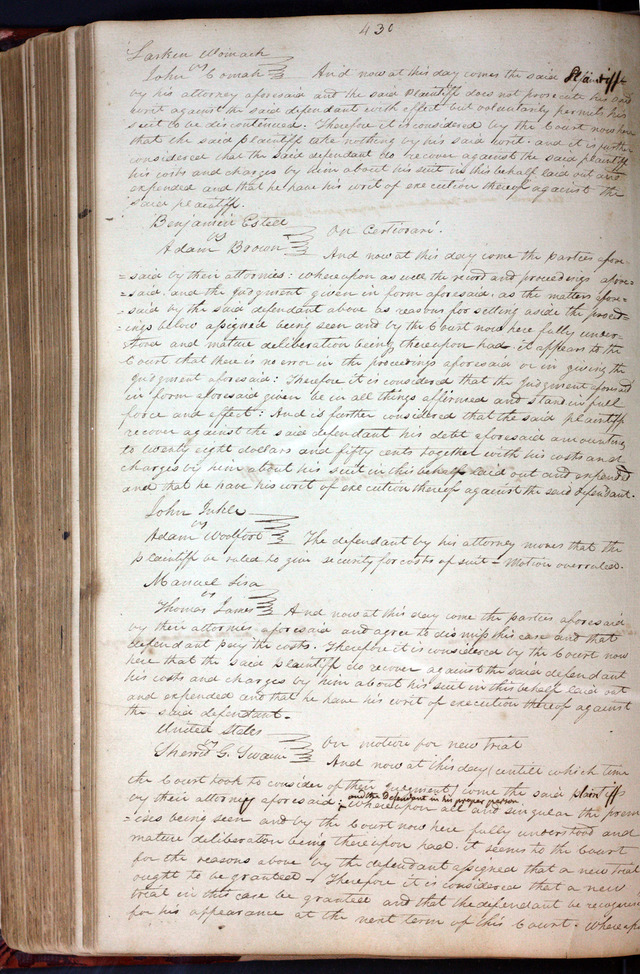 430
Larkin Womack
vs
John Comak And now at this day comes the said Plaintiff
by his attorney aforesaid and the said Plaintiff does not prosecute his said
writ against the said defendant with effect but voluntarily permits his
suit to be discontinued. Therefore it is considered by the Court now here
that the said plaintiff take nothing by his said writ. and it is further
considered that the said defendant do recover against the said plaintiff
his costs and charges by him about his suit in this behalf laid out and
expended and that he have his writ of execution thereof against the
said plaintiff.
Benjamin Esteel
vs On Certiorari.
Adam Brown And now at this day come the parties afore-
=said by their attornies: whereupon as well the record and proceedings afore-
=said. and the Judgment given in form aforesaid. as the matters afore-
=said by the said defendant above as reasons for setting aside the proceed-
=ings below assigned being seen and by the Court now here fully under-
stood and mature deliberation being thereupon had. it appears to the
Court that there is no error in the proceedings aforesaid or in giving the
Judgment aforesaid: Therefore it is considered that the Judgment aforesaid
in form aforesaid given be in all things affirmed and stand in full
force and effect: And is further considered that the said plaintiff
recover against the said defendant his debt aforesaid amounting
to twenty eight dollars and fifty cents together with his costs and
charges by him about his suit in this behalf laid out and expended
and that he have his writ of execution thereof against the said defendant.
John
vs
Adam Woolfort The defendant by his attorney moves that the
plaintiff be ruled to give security for costs of suit – Motion overruled.
Manuel Lisa
vs
Thomas James And now at this day come the parties aforesaid
by their attornies aforesaid and agree to dismiss this case and that
defendant pay the costs. Therefore it is considered by the Court now
here that the said plaintiff do recover against the said defendant
his costs and charges by him about his suit in this behalf laid out
and expended and that he have his writ of execution thereof against
the said defendant.
United States
vs On motion for new trial
Sherod G. Swain And now at this day (untill which time
the Court took to consider of their Judgment) come the said plaintiff
by their attorney aforesaid: and the defendant in his proper person whereupon all and singular the prem
=ises being seen and by the Court now here fully understood and
mature deliberation being thereupon had. it seems to the Court
for the reasons above by the defendant assigned that a new trial
ought to be granted – Therefore it is considered that a new
trial in this case be granted and that the defendant be recognized
for his appearance at the next term of this Court. Whereupon